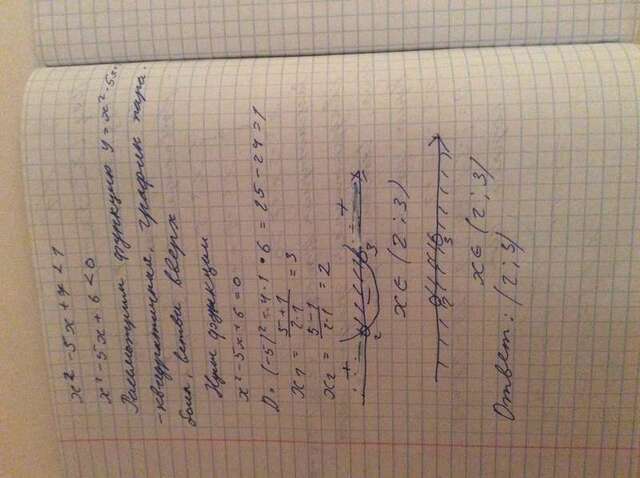 x² - 5x + 7 < 1
x² - 5x + 6 < 0
Рассмотрим функцию y = x² - 5x
- квадратичная, график пара-
бола, ветви вверх
Нули функции
x² - 5x + 6 = 0
D = (-5)² - 4 · 1 · 6 = 25 - 24 = 1
x₁ = (5+1)/(2·1) = 3
x₂ = (5-1)/(2·1) = 2
+ - +
2 3 x
x ∈ (2; 3)
2 3 x
x ∈ (2; 3)
Ответ: (2; 3)